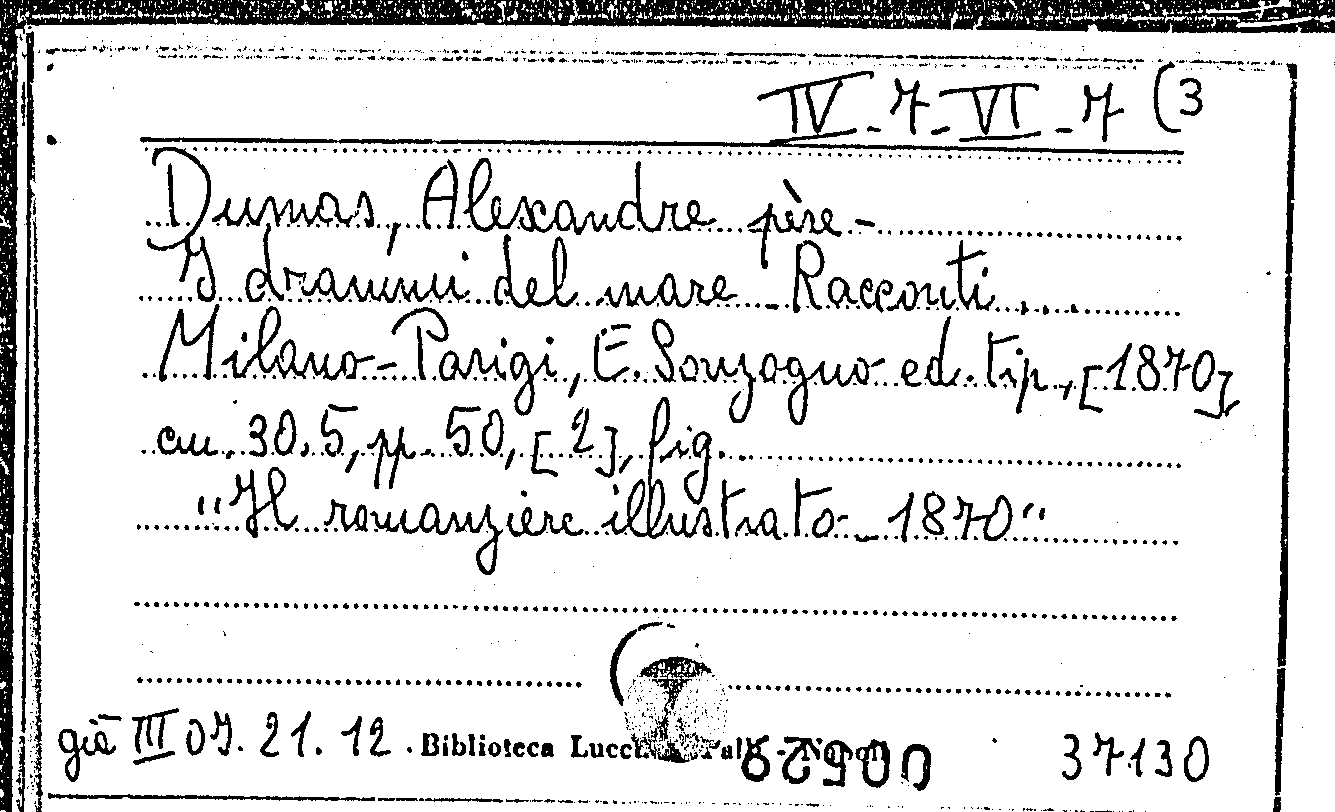 IV-7-VI-7 (3
Dumas, Alexandre père-
I drammi del mare - Racconti ...
Milano-Parigi, E. Sonzogno ed. tip., [1870],
cm. 30.5, pp. 50, [2], fig.
"Il romanziere illustrato - 1870"
già III 07. 21. 12. Biblioteca 37130